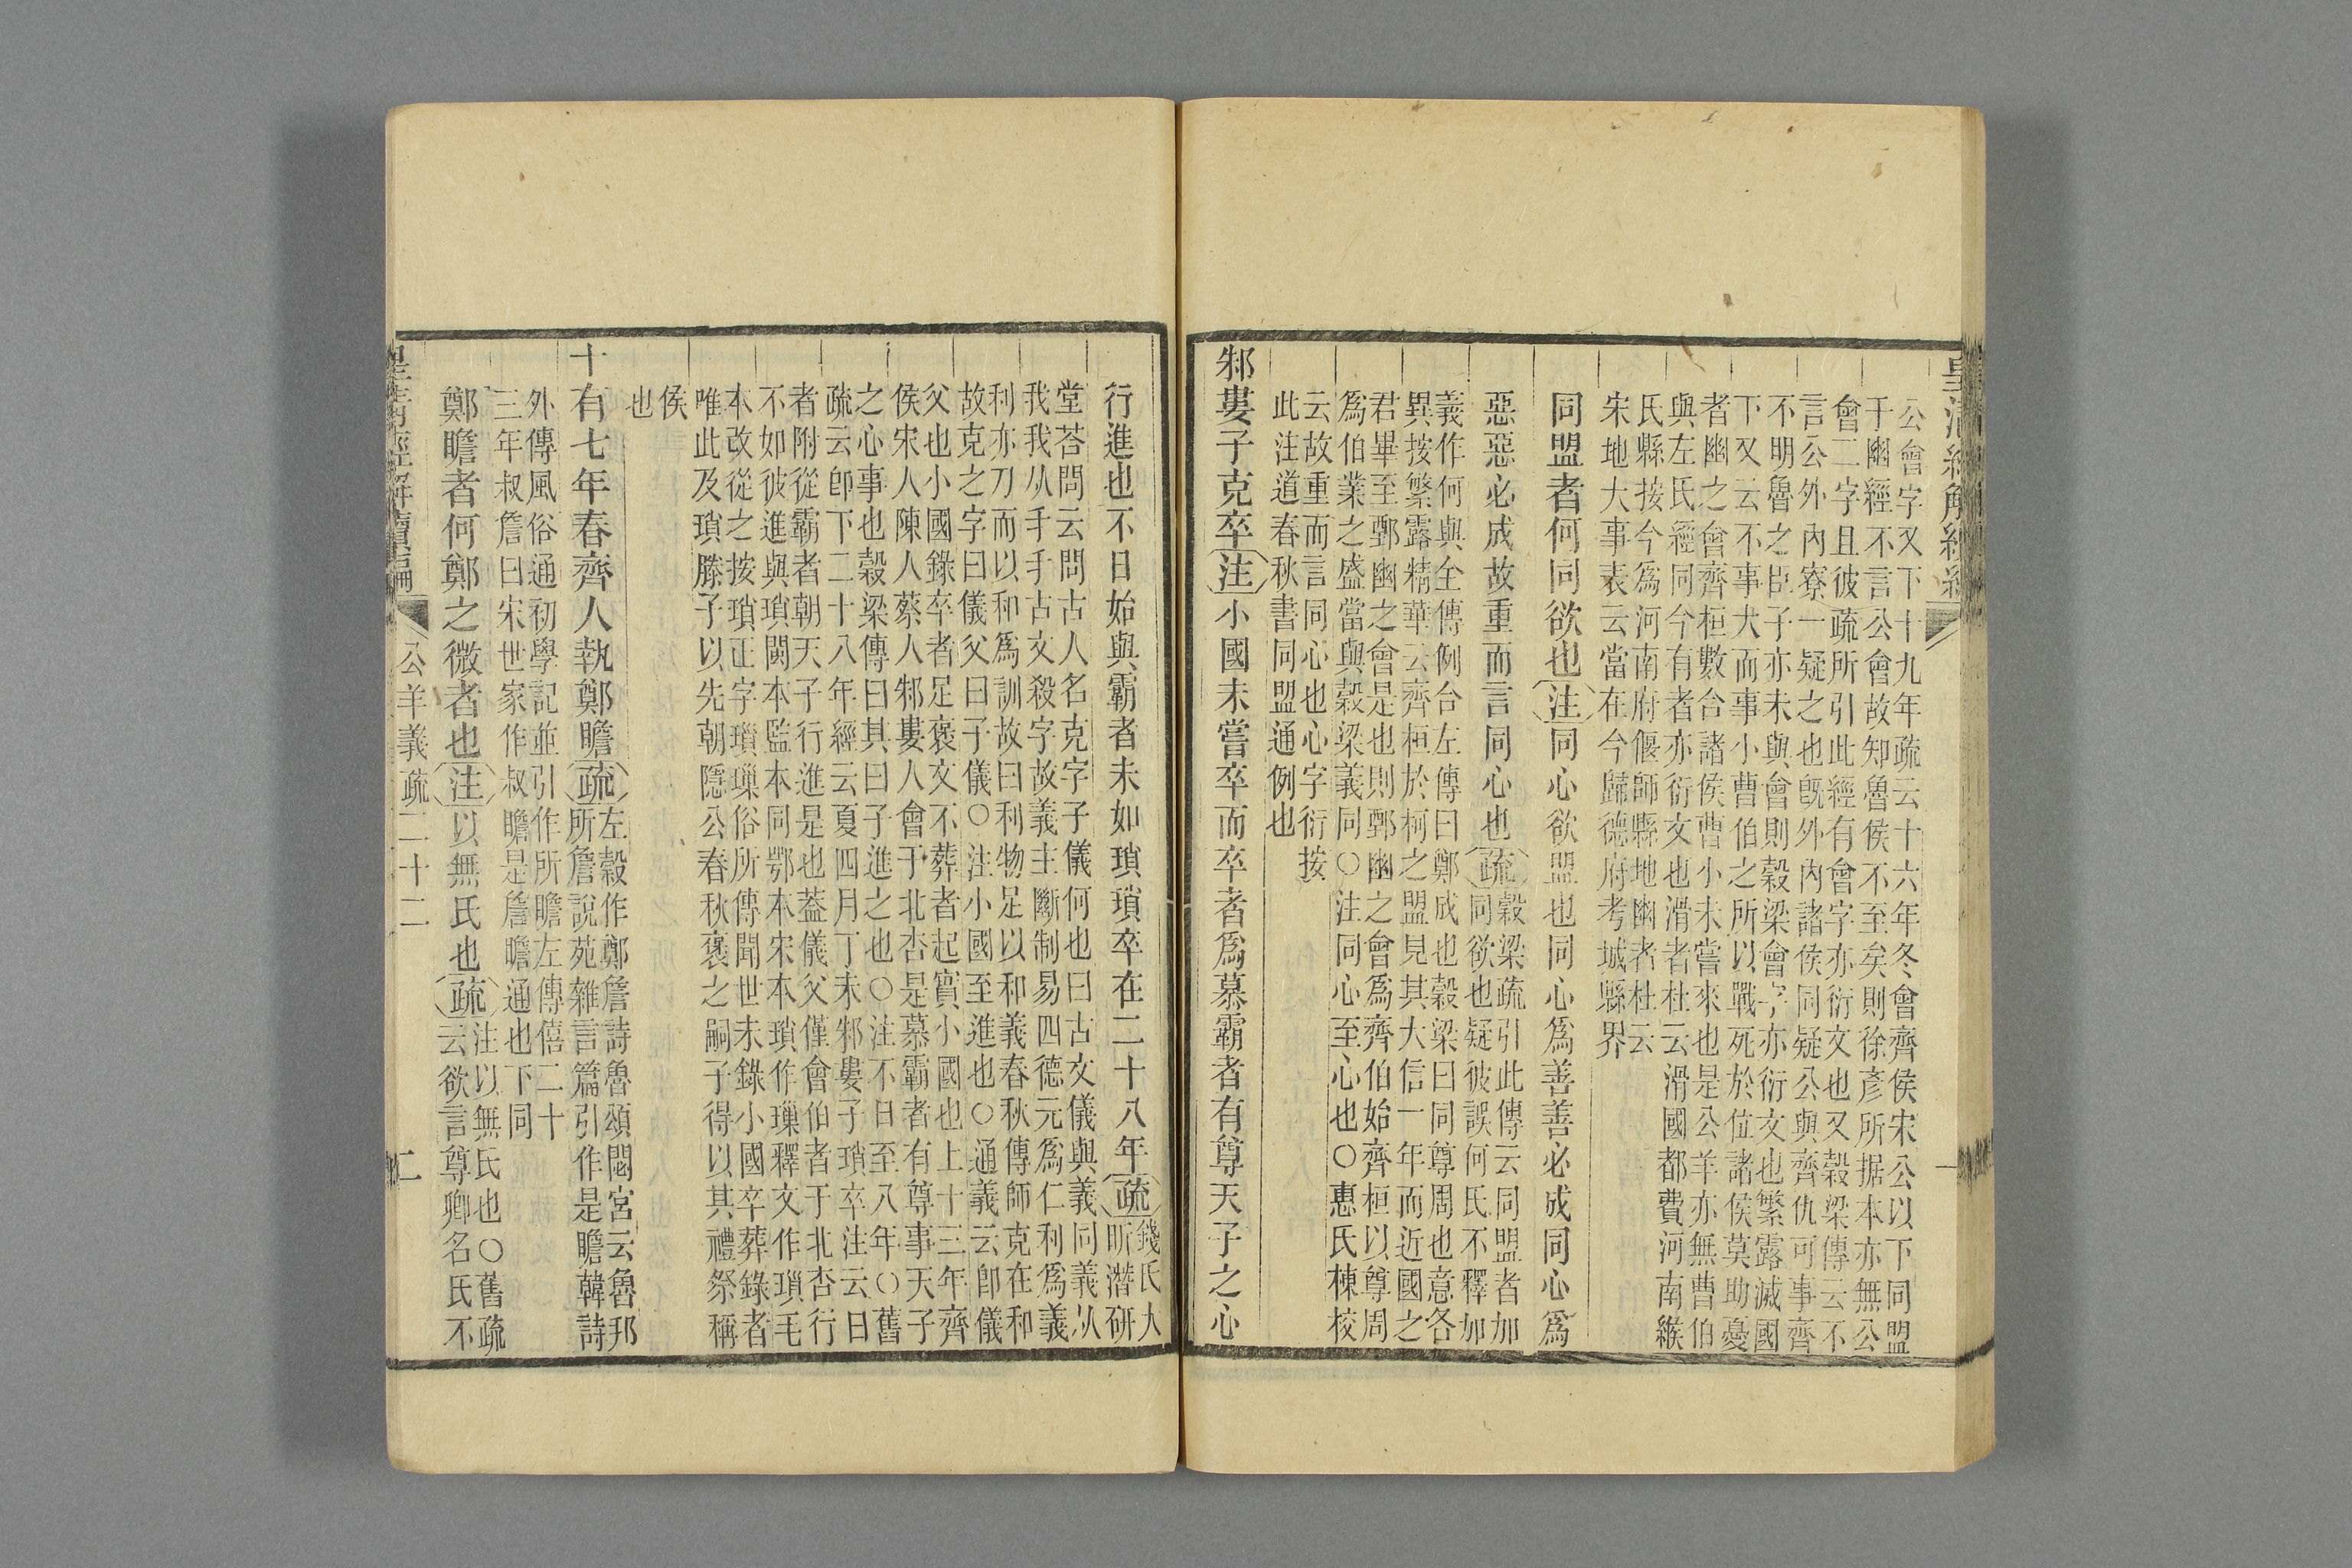 皇清經解續編
一
公會字又下十九年疏云十六年冬會齊侯宋公以下同盟
于幽經不言公會故知魯侯不至矣則徐彥所据本亦無公
會二字且彼疏所引此經有會字亦衍文也又穀梁傳云不
言公外內寮一疑之也旣外內諸侯同疑公與齊仇可事齊
不明魯之臣子亦未與會則穀梁會字亦衍文也繁露滅國
下又云不事大而事小曹伯之所以戰死於位諸侯莫助憂
者幽之會齊桓數合諸侯曹小未嘗來也是公羊亦無曹伯
與左氏經同今有者亦衍文也滑者杜云滑國都費河南緱
氏縣按今爲河南府偃師縣地幽者杜云
宋地大事表云當在今歸德府考城縣界
同盟者何同欲也注同心欲盟也同心爲善善必成同心爲
惡惡必成故重而言同心也疏穀梁疏引此傳云同盟者加
同欲也疑彼誤何氏不釋如
義作何與全傳例合左傳曰鄭成也穀梁曰同尊周也意各
異按繁露精華云齊桓於柯之盟見其大信一年而近國之
君畢至鄄幽之會是也則鄄幽之會爲齊伯始齊桓以尊周
爲伯業之盛當與穀梁義同○注同心至心也○惠氏棟校
云故重而言同心也心字衍按
此注道春秋書同盟通例也
邾婁子克卒注小國未嘗卒而卒者爲慕霸者有尊天子之心
行進也不日始與霸者未如瑣瑣卒在二十八年疏錢氏大
昕潛研
堂荅問云問古人名克字子儀何也曰古文儀與義同義从
我我从手手古文殺字故義主斷制易四德元爲仁利爲義
利亦刀而以和爲訓故曰利物足以和義春秋傳師克在和
故克之字曰儀父曰子儀○注小國至進也○通義云卽儀
父也小國錄卒者足褒文不葬者起實小國也上十三年齊
侯宋人陳人蔡人邾婁人會于北杏是慕霸者有尊事天子
之心事也穀梁傳曰其曰子進之也○注不日至八年○舊
疏云卽下二十八年經云夏四月丁未邾婁子瑣卒注云日
者附從霸者朝天子行進是也蓋儀父僅會伯者于北杏行
不如彼進與瑣閩本監本同鄂本宋本瑣作璅釋文作瑣毛
本改從之按瑣正字璅俗所傳聞世未錄小國卒葬錄者
唯此及瑣滕子以先朝隱公春秋褒之嗣子得以其禮祭稱
侯
也
十有七年春齊人執鄭瞻疏左穀作鄭詹詩魯頌閟宮云魯邦
所詹說苑雜言篇引作是瞻韓詩
外傳風俗通初學記並引作所瞻左傳僖二十
三年叔詹曰宋世家作叔瞻是詹瞻通也下同
鄭瞻者何鄭之微者也注以無氏也疏注以無氏也○舊疏
云欲言尊卿名氏不
公羊義疏二十二
二